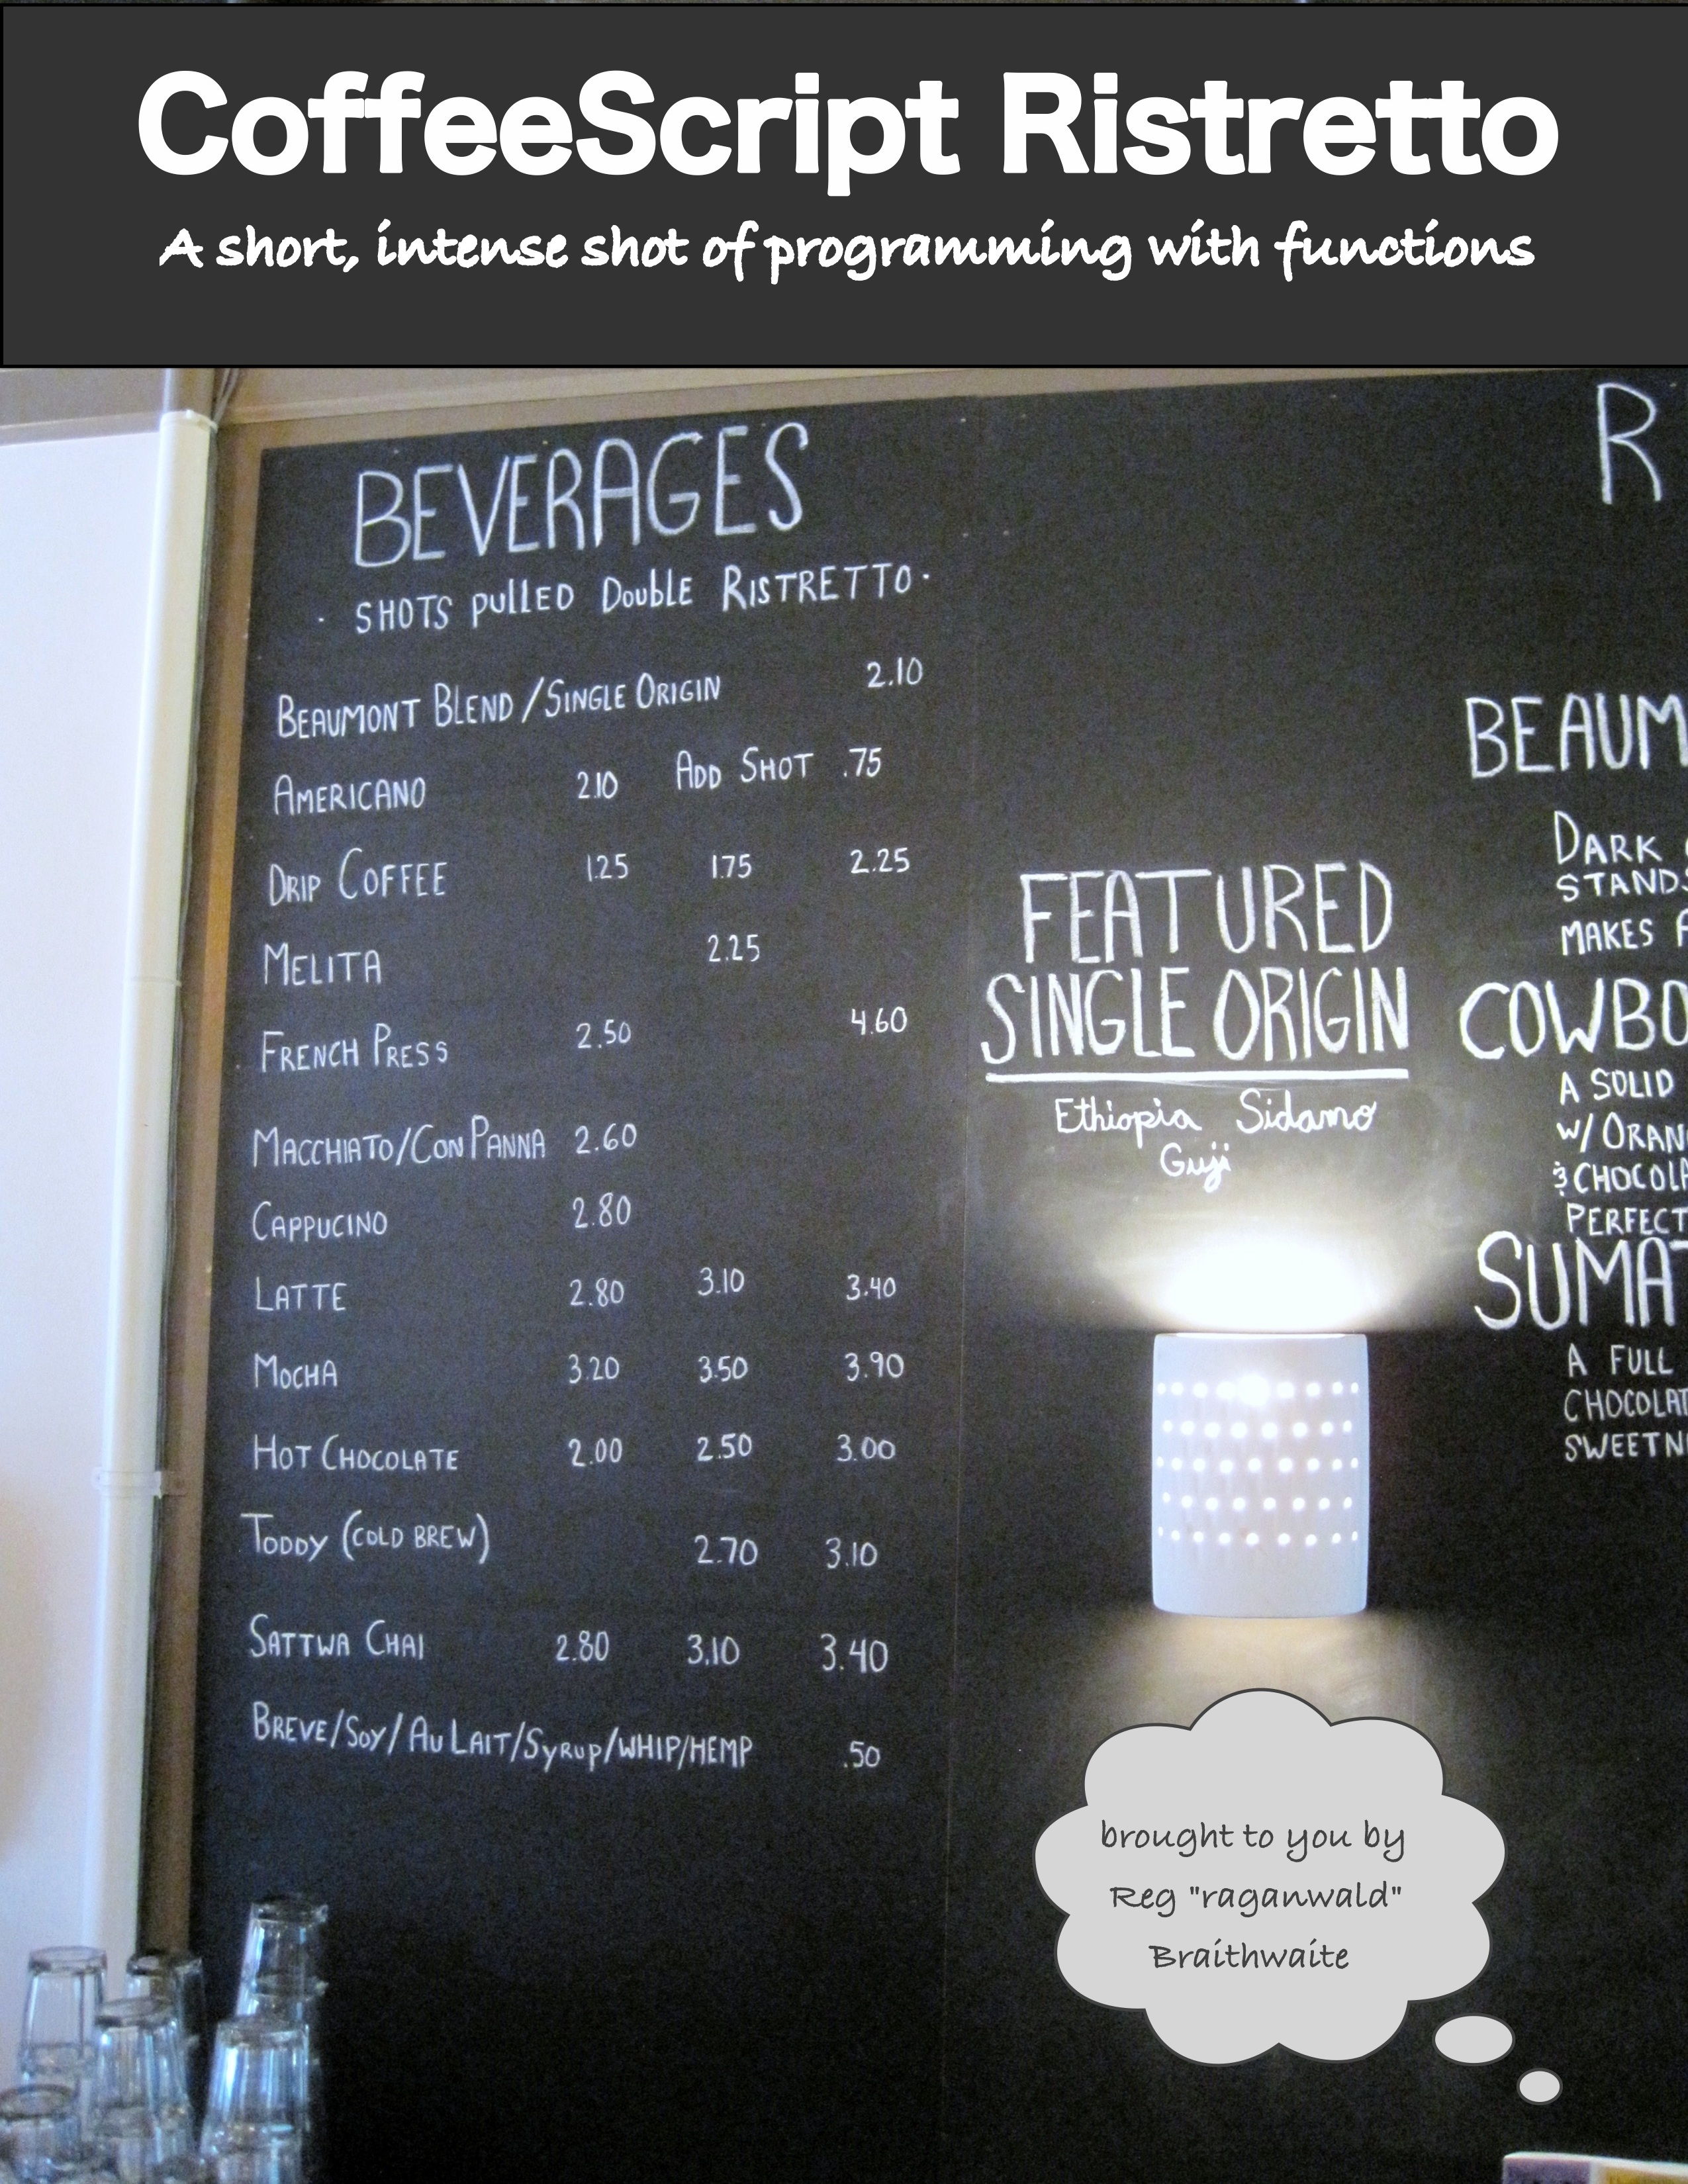 CoffeeScript Ristretto
A short, intense shot of programming with functions
BEVERAGES
· SHOTS pullED DoublE RISTRETTO ·
BEAUMONT BLEND / SINGLE ORIGIN 2.10
AMERICANO 2.10 ADD SHOT .75
DRIP COFFEE 1.25 1.75 2.25
MELITA 2.25
FRENCH PRESS 2.50 4.60
MACCHIATO/CON PANNA 2.60
CAPPUCINO 2.80
LATTE 2.80 3.10 3.40
MOCHA 3.20 3.50 3.90
HOT CHOCOLATE 2.00 2.50 3.00
TODDY (COLD BREW) 2.70 3.10
SATTWA CHAI 2.80 3.10 3.40
BREVE/SOY/AU LAIT/SYRUP/WHIP/HEMP .50
FEATURED
SINGLE ORIGIN
Ethiopia Sidamo
Guji
R
BEAUM
DARK
STANDS
MAKES A
COWBO
A SOLID
W/ ORAN
& CHOCOLA
PERFECT
SUMAT
A FULL
CHOCOLAT
SWEETN
brought to you by
Reg "raganwald"
Braithwaite